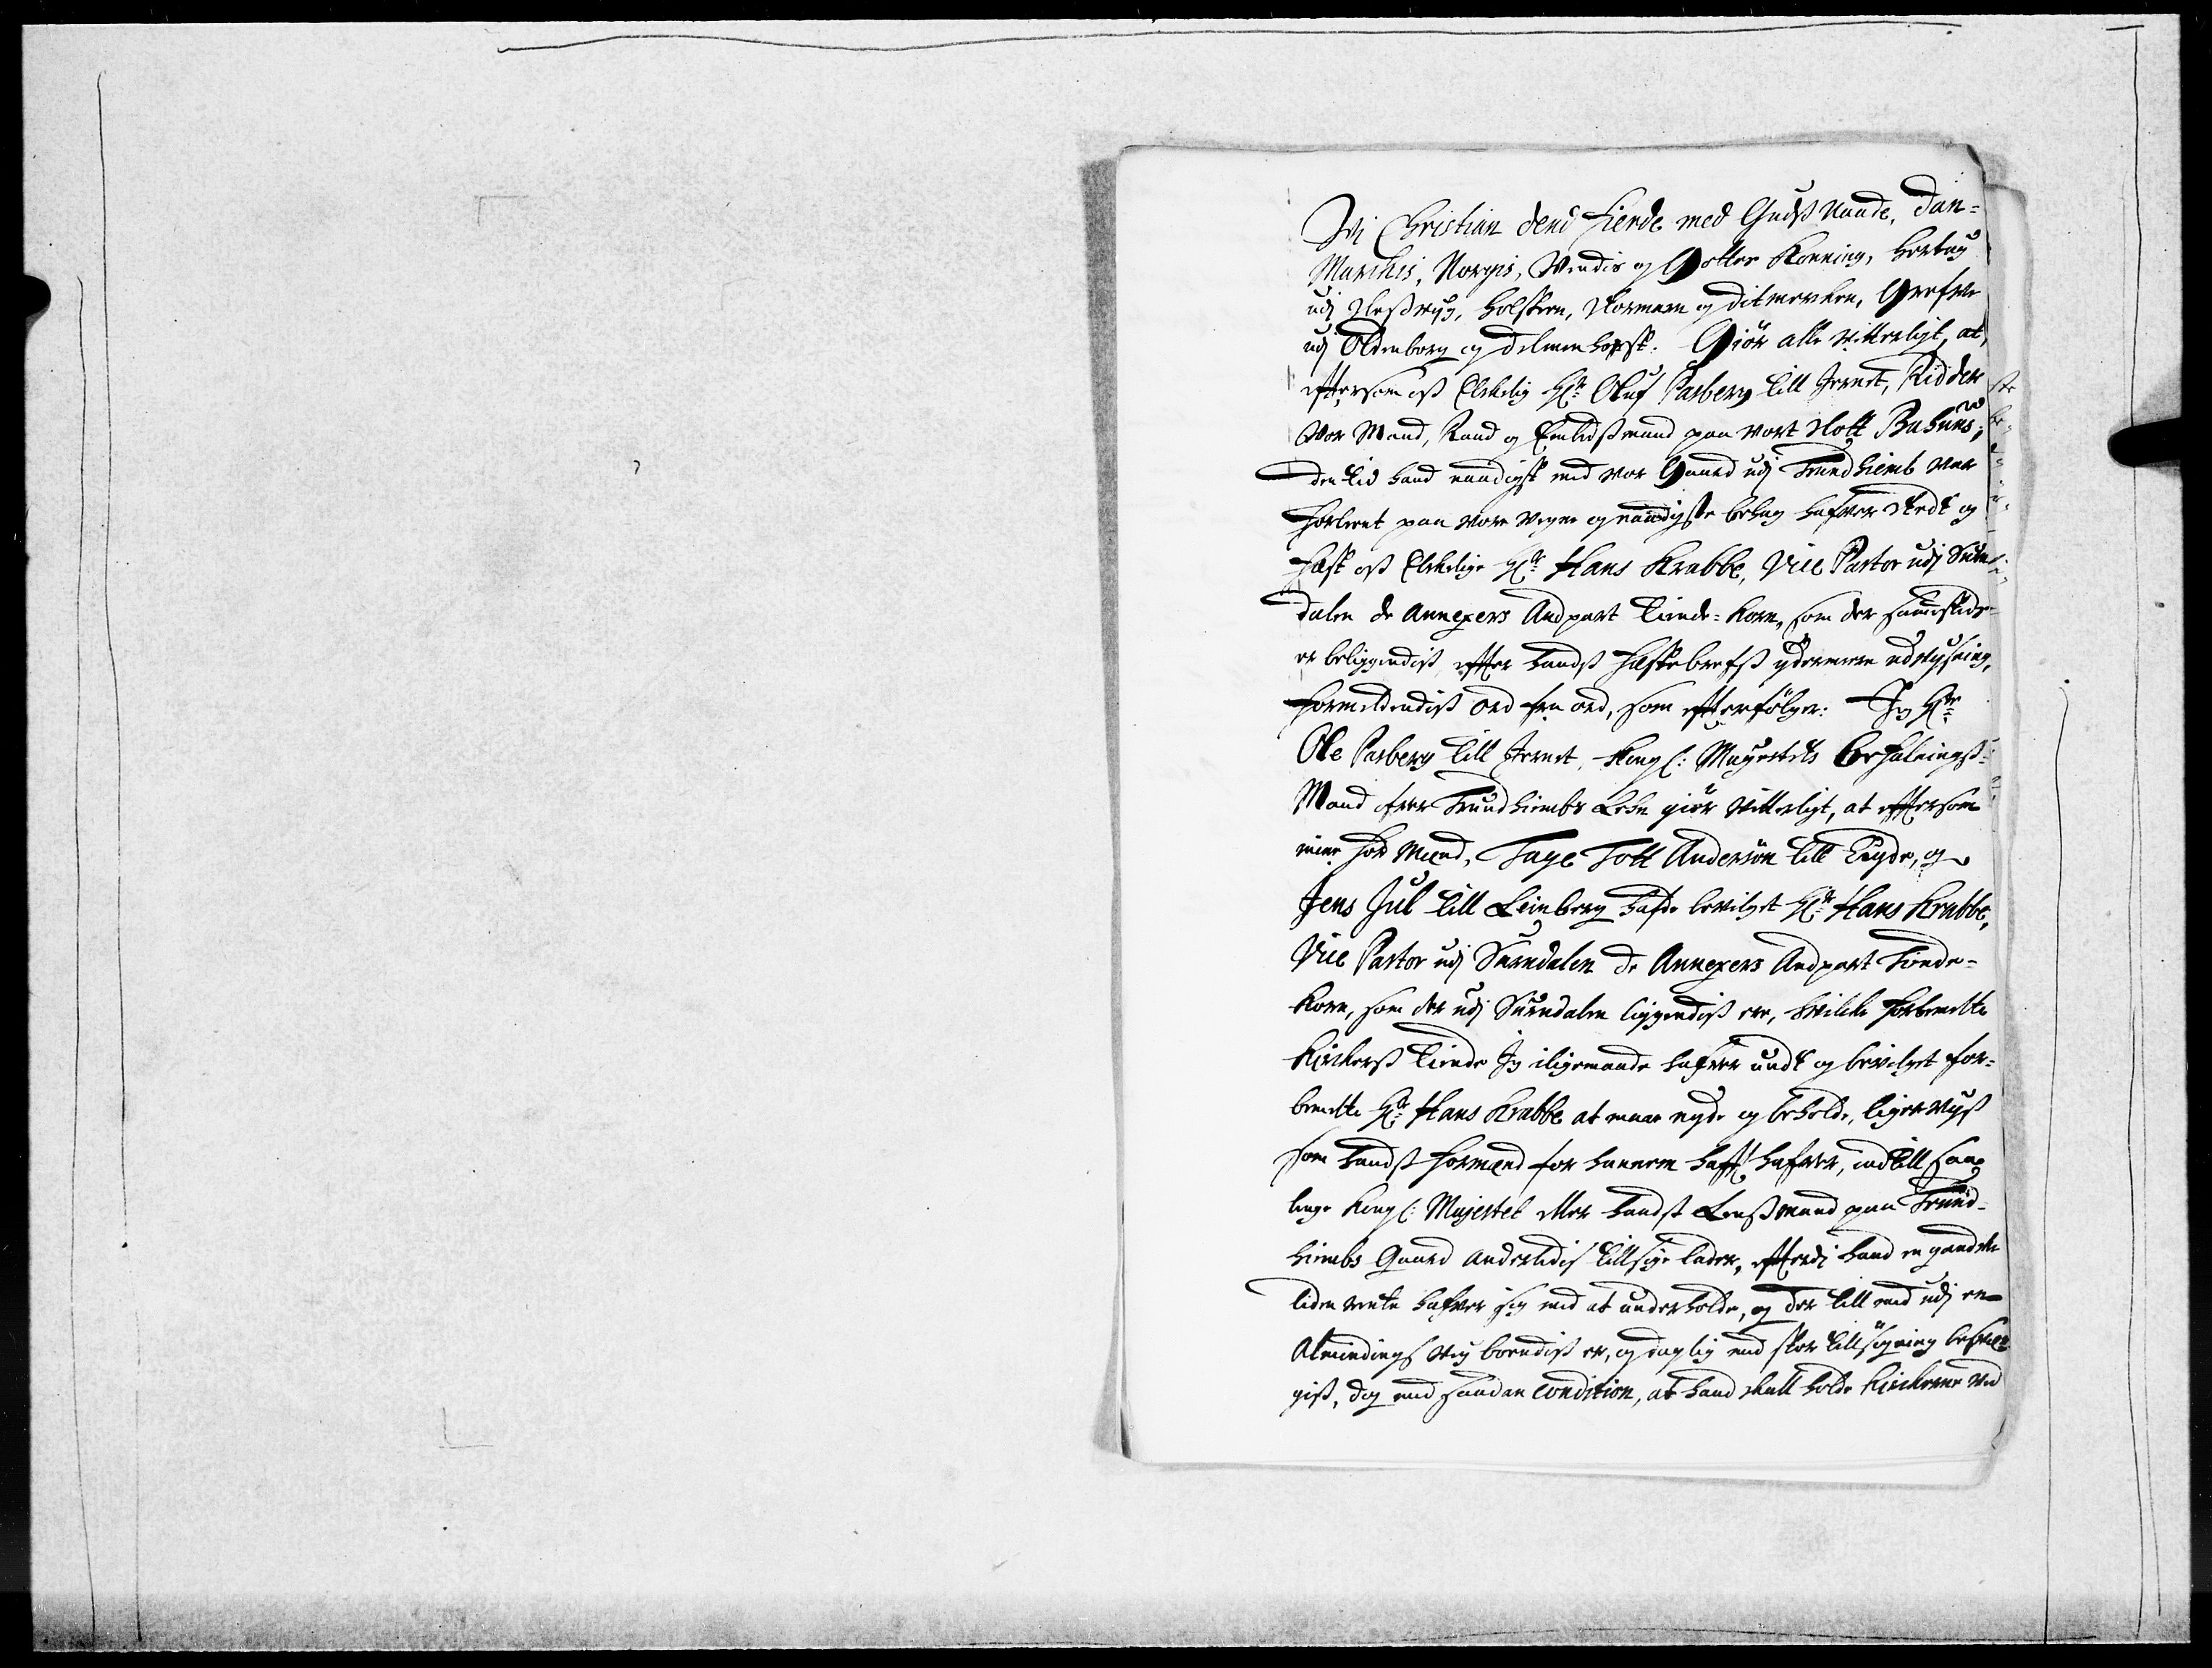 Wi Christian dend Fierde med Gudß Naade, Dan-
Marckis, Norgis, Wendis og Gotter Konning, Hertug
udj Slesßvyg, Holsteen, Stormarn og Ditmersken, Grefve
udj Oldenborg og Delmenhorst: Giör alle Vitterligt, at,
eftersom oß Elskelig Hr: Oluf Parberg till Jernet, Ridder
Vor Mand, Raad og Embidßmand paa vort Slott Bahuus,
den tid hand naadigst med vor Gaard udj Trundhiemb var
forlent paa vore vegne og naadigste behag hafver stedt og
fæst oß Elskelige Hr: Hans Krabbe, Vice Pastor udj Suren-
dalen de Annexers Andpart Tiende-Korn, som der sammestede
er beliggendiß, effter handß fæstebrefß ydermere udvysning,
formeldendiß ord fra ord, som efterfölger: Jeg Hr:
Ole Parberg till Jernet, Kongl: Mayestets Befalningß-
Mand ofver Trundhiembs Lehn giör vitterligt, at eftersom
mine for Mænd, Tage Tott Andersön till Eryde, og
Jens Juel till Keinberg hafde bevilget Hr: Hans Krabbe,
Vice Pastor udj Surendalen de Annexers Andpart Tiende-
Korn, som der udj Surendalen liggendiß ere, hvilcke forbemelte
Kirckerß Tiende Jeg iligemaade hafver undt og bevilget for-
bemelte Hr: Hans Krabbe at maae nyde og beholde, ligerviß
som handß formænd for hannem hafft hafver, indtill saa
lenge Kongl: Majestet eller handß Lenßmand paa Trund-
hiembs Gaard anderledis tillsige lader, efterdj hand en gandske
liden rente hafver sig med at underholde, og der till med udj en
Almindings Vey boendiß er, og daglig med stor tillsögning besvær-
giß, dog med saadan condition, at hand skall holde Kirckerne ved